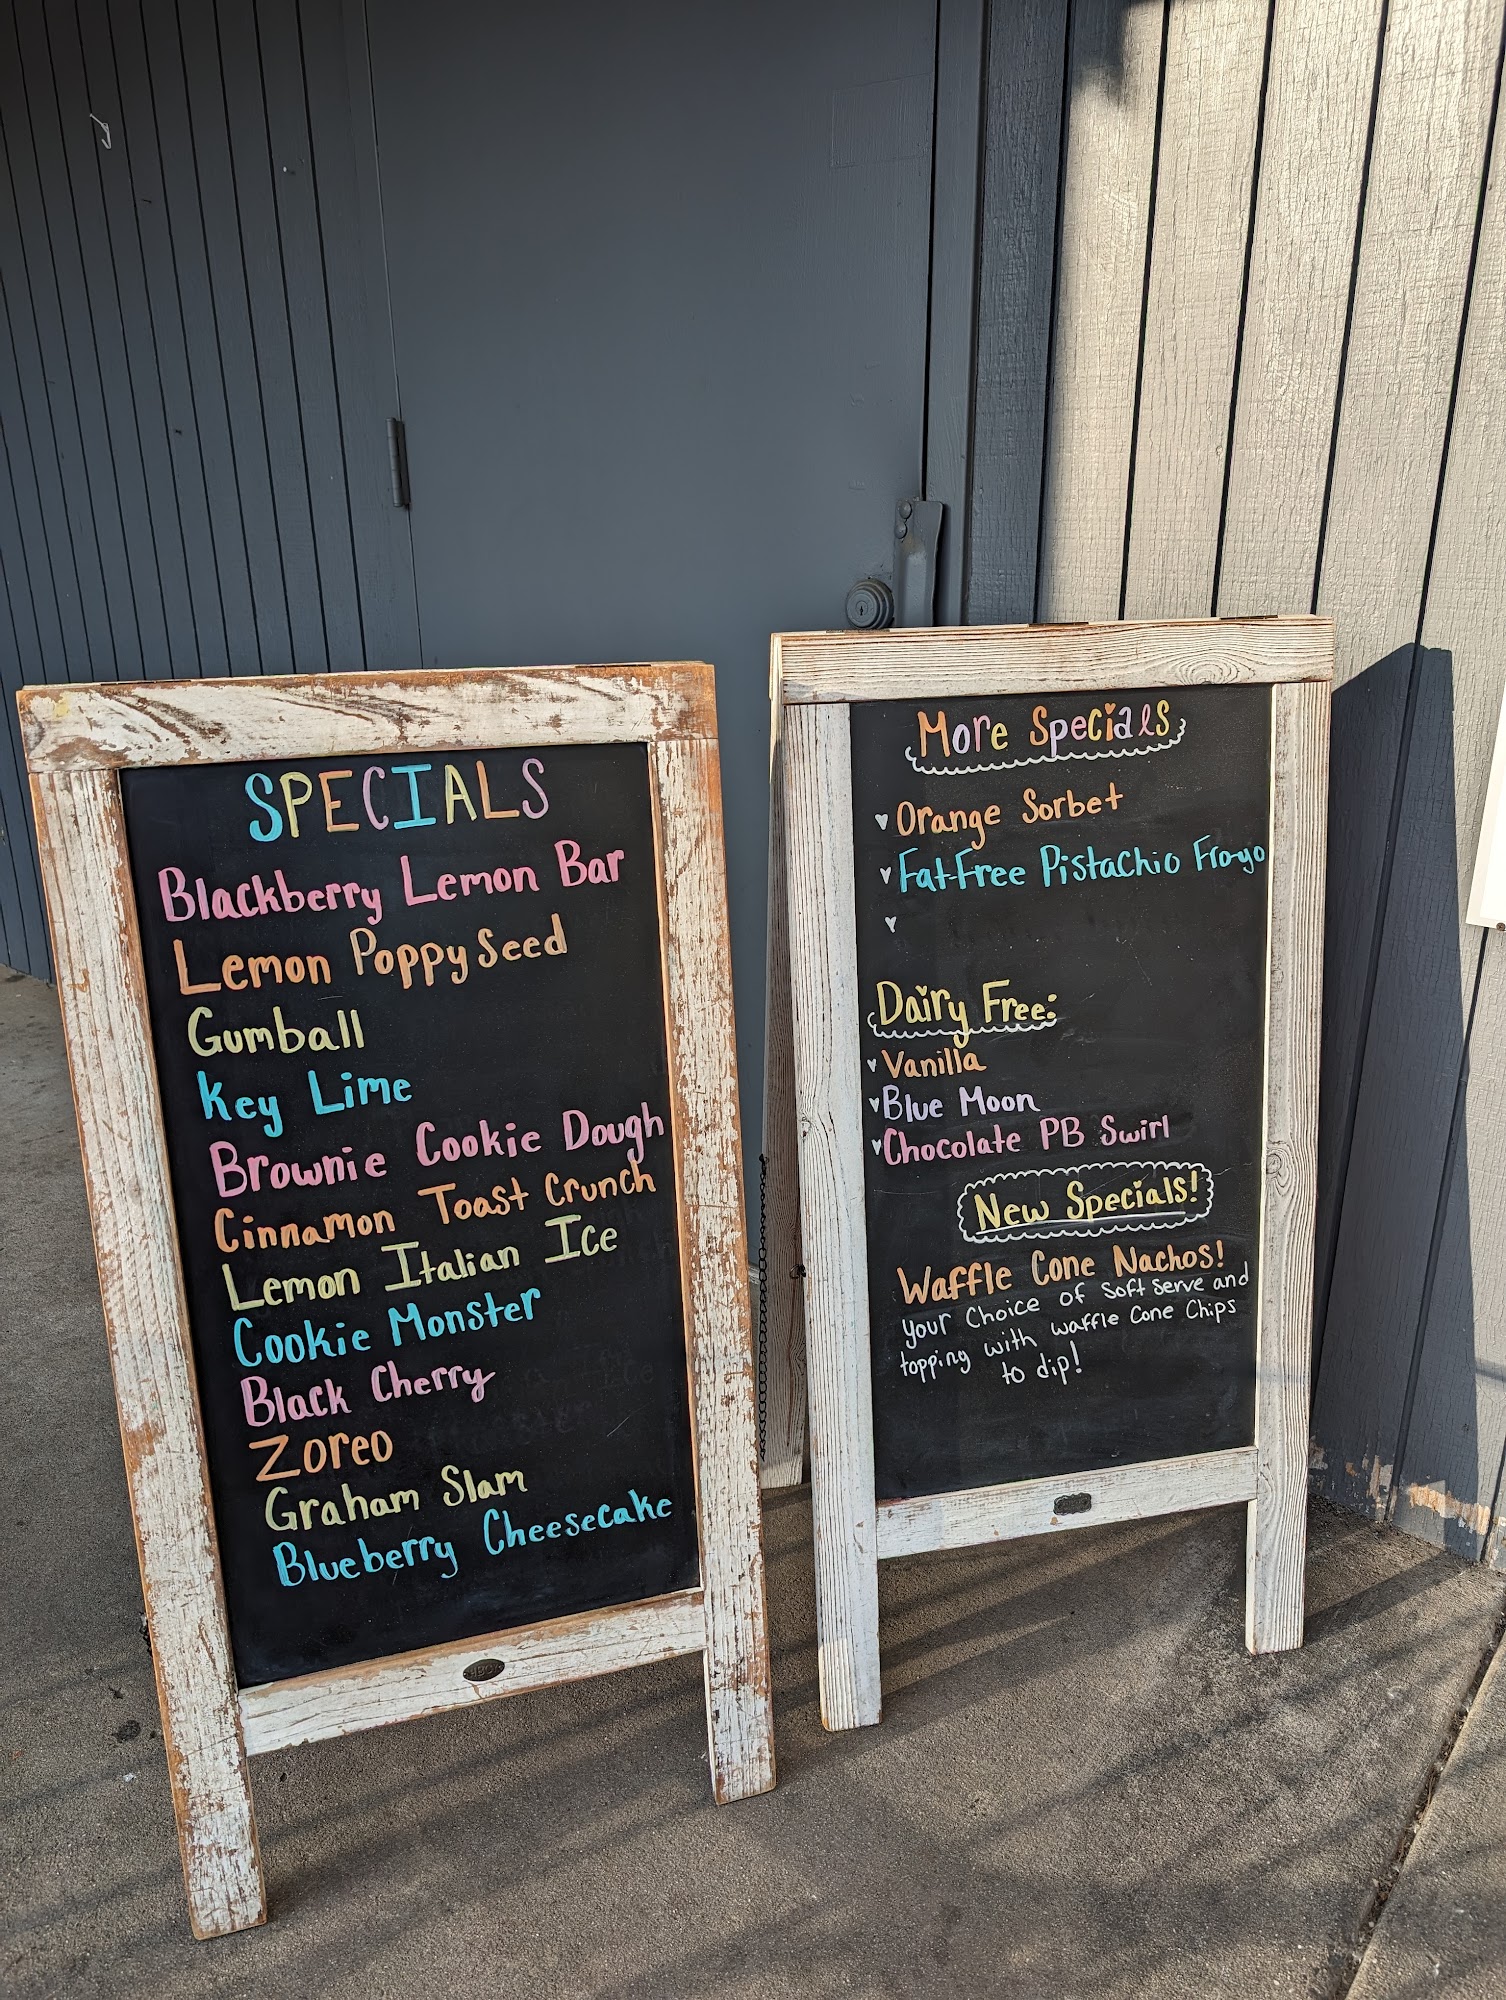 SPECIALS
Blackberry Lemon Bar
Lemon Poppyseed
Gumball
Key Lime
Brownie Cookie Dough
Cinnamon Toast Crunch
Lemon Italian Ice
Cookie Monster
Black Cherry
Zoreo
Graham Slam
Blueberry Cheesecake
More Specials
Orange Sorbet
Fat-Free Pistachio Fro-yo
Dairy Free:
Vanilla
Blue Moon
Chocolate PB Swirl
New Specials!
Waffle Cone Nachos!
your Choice of Soft Serve and
topping with waffle cone Chips
to dip!